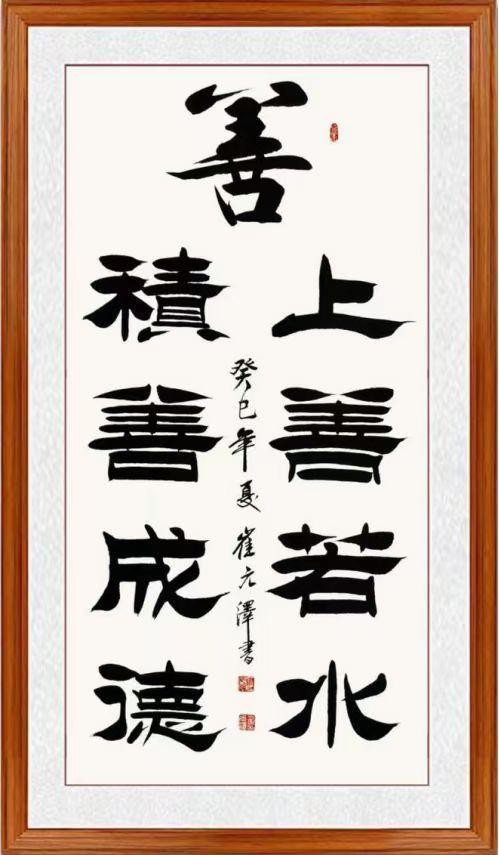 善
上善若水
積善成德
癸巳年夏 崔元澤書